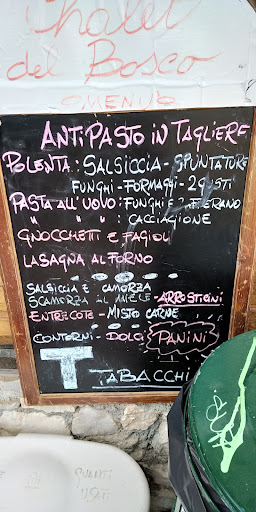 Chalet
del Bosco
MENÙ
ANTIPASTO IN TAGLIERE
POLENTA: SALSICCIA - SPUNTATURE
FUNGHI - FORMAGGI - 2 GUSTI
PASTA ALL'UOVO: FUNGHI E ZAFFERANO
" " " : CACCIAGIONE
GNOCCHETTI E FAGIOLI
LASAGNA AL FORNO
SALSICCIA E CAMORZA
SCAMORZA AL MIELE - ARROSTICINI
ENTRECOTE - MISTO CARNE
CONTORNI - DOLCI PANINI
T TABACCHI
GUANTI
USATI